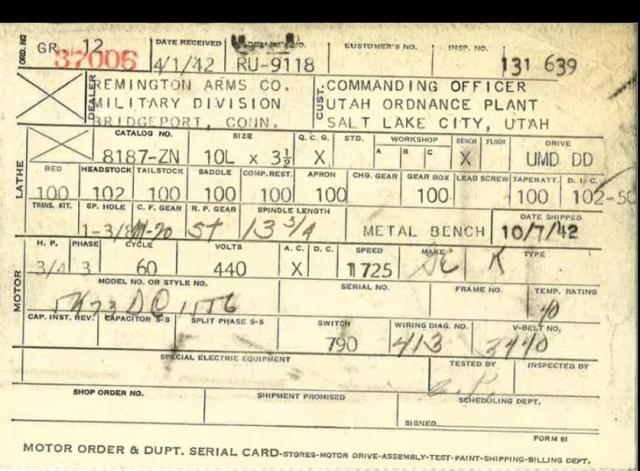 ORD. NO GR. 12 37006 DATE RECEIVED 4/1/42 RU-9118 CUSTOMER'S NO. INSP. NO. 131 639
DEALER REMINGTON ARMS CO. CUST. COMMANDING OFFICER
MILITARY DIVISION UTAH ORDNANCE PLANT
BRIDGEPORT, CONN. SALT LAKE CITY, UTAH
LATHE
CATALOG NO. SIZE Q. C. G. STD. WORKSHOP A B C BENCH FLOOR DRIVE
8187-ZN 10L x 3½ X X UMD DD
BED HEADSTOCK TAILSTOCK SADDLE COMP. REST. APRON CHG. GEAR GEAR BOX LEAD SCREW TAPER ATT. D. I. C.
100 102 100 100 100 100 100 100 102-50
TRANS. ATT. SP. HOLE C. F. GEAR R. P. GEAR SPINDLE LENGTH DATE SHIPPED
1-3/8 St 13 3/4 METAL BENCH 10/7/42
MOTOR
H. P. PHASE CYCLE VOLTS A. C. D. C. SPEED MAKE TYPE
3/4 3 60 440 X 1725 K
MODEL NO. OR STYLE NO. SERIAL NO. FRAME NO. TEMP. RATING
40
CAP. INST. REV. CAPACITOR S-S SPLIT PHASE S-S SWITCH WIRING DIAG. NO. V-BELT NO.
790 413 3440
SPECIAL ELECTRIC EQUIPMENT TESTED BY INSPECTED BY
SHOP ORDER NO. SHIPMENT PROMISED SCHEDULING DEPT.
SIGNED
FORM 81
MOTOR ORDER & DUPT. SERIAL CARD-STORES-MOTOR DRIVE-ASSEMBLY-TEST-PAINT-SHIPPING-BILLING DEPT.